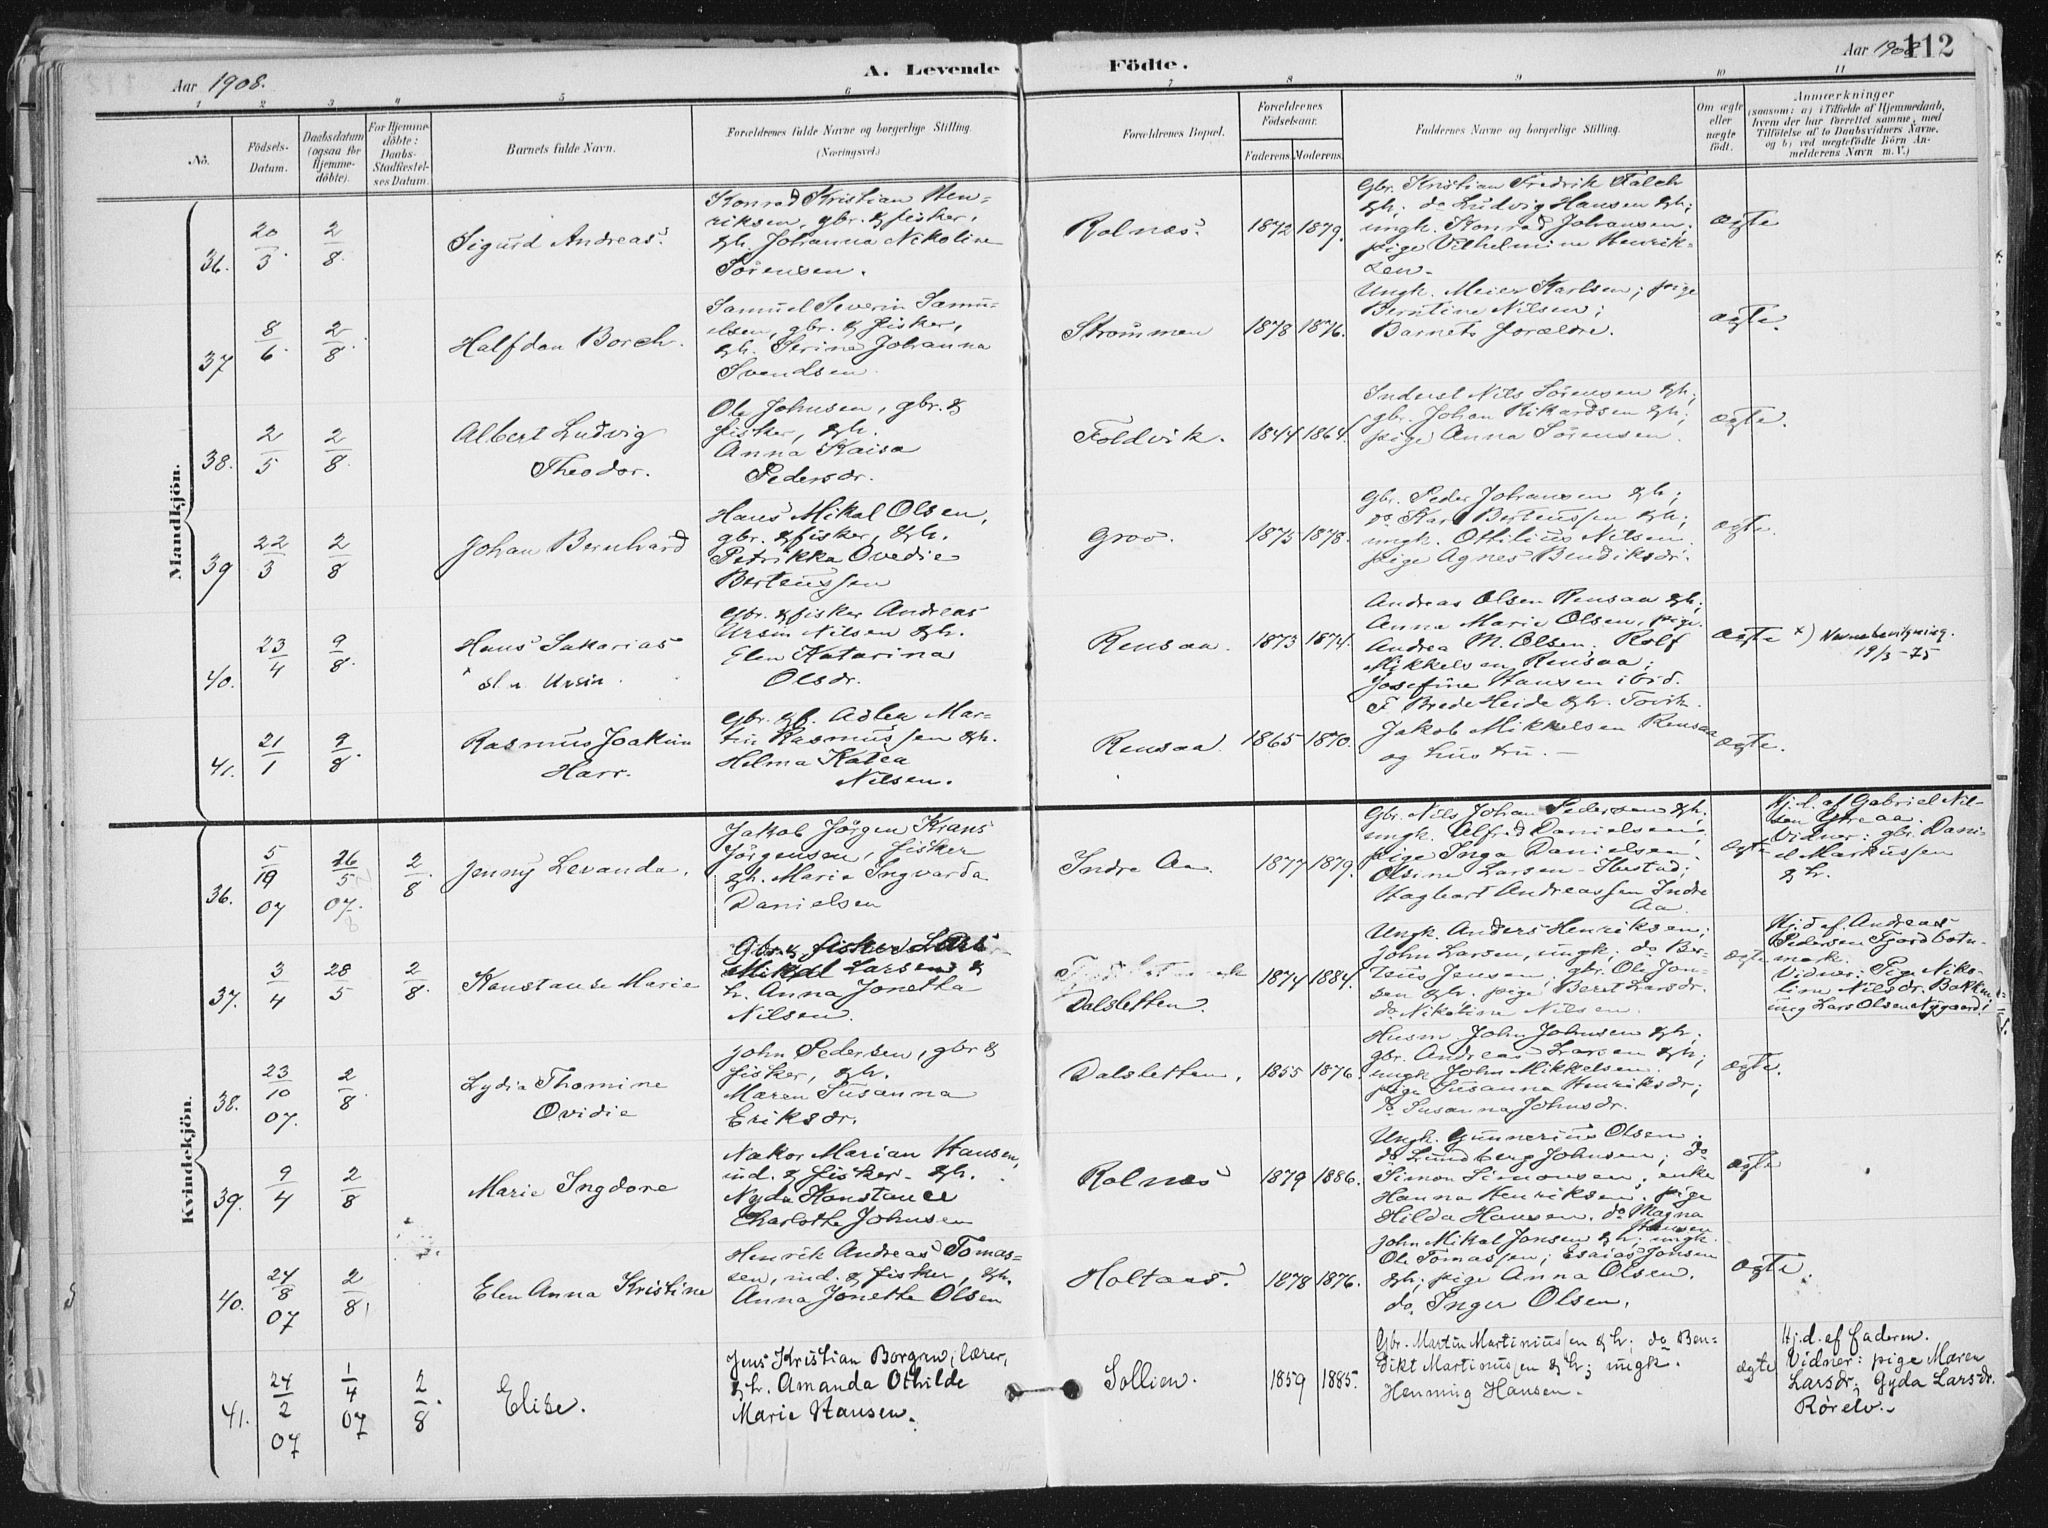 Aar 1908.
A. Levende
Födte.
Aar 1908
112
1 2 3 4 5 6 7 8 9 10 11
No.
Födsels-
Datum.
Daabsdatum
(ogsaa for
Hjemme-
döbte).
For Hjemme-
döbte:
Daabs-
Stadfæstel-
ses Datum.
Barnets fulde Navn.
Forældrenes fulde Navne og borgerlige Stilling.
(Næringsvei.)
Forældrenes Bopæl.
Forældrenes
Födselsaar.
Faderens. Moderens.
Faddernes Navne og borgerlige Stilling.
Om ægte
eller
uægte
födt.
Anmærkninger
(saasom: a) i Tilfælde af Hjemmedaab,
hvem der har forrettet samme, med
Tilföielse af to Daabsvidners Navne,
og b) ved uegtefödte Börn An-
melderens Navn m. V.)
Mandkjön.
36.
20/3.
2/8.
Sigurd Andreas.
Konrad Kristian Hen-
riksen, gbr. & fisker,
& h. Johanna Nikoline
Sörensen.
Rolnes.
1872 1879.
Gbr. Kristian Fredrik Falch
& h; do Ludvig Hansen & h;
ungk. Konrad Johansen;
pige Vilhelmine Henrik-
sen.
ægte
37
8/6.
2/8.
Halfdan Borch.
Samuel Severin Samu-
elsen, gbr. & fisker,
& h. Serine Johanna
Svendsen
Strömmen
1878 1876.
Ungk. Meier Karlsen; pige
Berntine Nilsen;
Barnets forældre.
ægte.
38.
2/5
2/8.
Albert Ludvig
Theodor.
Ole Johnsen, gbr. &
fisker, & h.
Anna Kaisa
Pedersdr.
Foldvik.
1844 1864.
Inderst Nils Sörensen & h;
gbr. Johan Rikardsen & h;
pige Anna Sörensen.
ægte.
39
22/3
2/8
Johan Bernhard
Hans Mikal Olsen,
gbr. & fisker, & h.
Petrikka Ovedie
Berteussen
Grov.
1875 1878.
Gbr. Peder Johansen & h;
do Karl Berteussen & h;
ungk. Othilius Nilsen.
pige Agnes Bendiksdr.
ægte.
40.
23/4
9/8.
Hans Sakarias
Ursin.
Gbr. & fisker Andreas
Ursin Nilsen & h.
Elen Katarina
Olsdr.
Rensaa.
1873 1874.
Andreas Olsen Rensaa & h;
Anna Marie Olsen, pige
Andrea M. Olsen; Rolf
Mikkelsen Rensaa;
Josefine Hansen ibid.
ægte
x) Navnebevilgning.
19/3-75
41.
21/1
9/8
Rasmus Joakim
Harr.
Gbr. & f. Adler Mar-
tin Rasmussen & h.
Helma Katea
Nilsen.
Rensaa.
1865 1870.
F Brede Heide & h.
Jakob Mikkelsen Rensaa
og hustru. –
ægte.
Kvindekjön.
36.
5/19 07
26/5 07.
2/8
Jenny Levanda.
Jakob Jörgen Krans
Jörgensen, fisker
& h. Marie Ingvarda
Danielsen
Indre Aa.
1877 1879.
Gbr. Nils Johan Pedersen & h;
ungk. Alfred Danielsen;
pige Inga Danielsen.
Olsine Larsen Ibestad;
Hagbart Andreassen Indre
Aa.
ægte
Hj.d. af Gabriel Nil-
sen Ytre aa.
Vidner: gbr. Dani-
el Markussen
& h.
37.
3/4
28/5
2/8.
Konstanse Marie
Gbr. & fisker Lars
Mikal Larsen &
h. Anna Jonetha
Nilsen.
Dalsletten.
1874 1884.
Ungk. Anders Henriksen;
John Larsen, ungk; do Ber-
teus Jensen; gbr. Ole Jon-
sen & h. pige Beret Larsdr.
do Nikoline Nilsen.
ægte
Hj.d af. Andreas
Pedersen Fjordbotn-
mark.
Vidner: Pige Niko-
line Nilsdr. Bakken,
ung Lars Olsen Nygaard.
38.
23/10 07.
2/8
Lydia Thomine
Ovidie
John Pedersen, gbr &
fisker, & h.
Maren Susanna
Eriksdr.
Dalsletten.
1855 1876.
Husm. John Johnsen & h;
gbr. Andreas Larsen & h;
ungk John Mikkelsen.
pige Susanna Henriksdr;
do Susanna Johnsdr.
ægte.
39.
9/4
2/8
Marie Ingdore
Nakor Marian Hansen,
ind. & fisker & h.
Nyda Konstance
Charlothe Johnsen
Rolnes
1879 1886.
Ungk. Gunnerius Olsen;
do Lundberg Johnsen; do
Simon Simonsen; enke
Hanna Henriksen. pige
Hilda Hansen. do Magna
Hansen.
ægte
40.
24/8 07
2/8
Elen Anna Kristine
Henrik Andreas Tomas-
sen, ind. & fisker, & h.
Anna Jonethe Olsen
Holtaas.
1878 1876.
John Mikal Jonsen & h; ungk.
Ole Tomassen; Esaias Jonsen
& h; pige Anna Olsen.
do. Inger Olsen.
ægte.
41.
24/2 07
1/4 07
2/8
Elise.
Jens Kristian Borgen, lærer,
& h. Amanda Othilde
Marie Hansen.
Sollien.
1859 1885.
Gbr. Martin Martiniussen & h; do Ben-
dikt Martinussen & h; ungk.
Henning Hansen.
ægte
Hj.d. af faderen.
Vidner: pige Maren
Larsdr; Gyda Larsdr.
Rörelv.